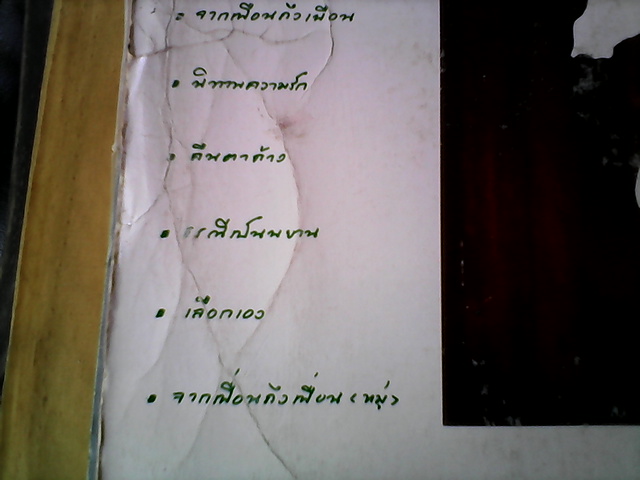 จากเพื่อนถึงเพื่อน
นิทานความรัก
คืนตาค้าง
ธรณีเป็นพยาน
เลือกเอง
จากเพื่อนถึงเพื่อน (หมู่)